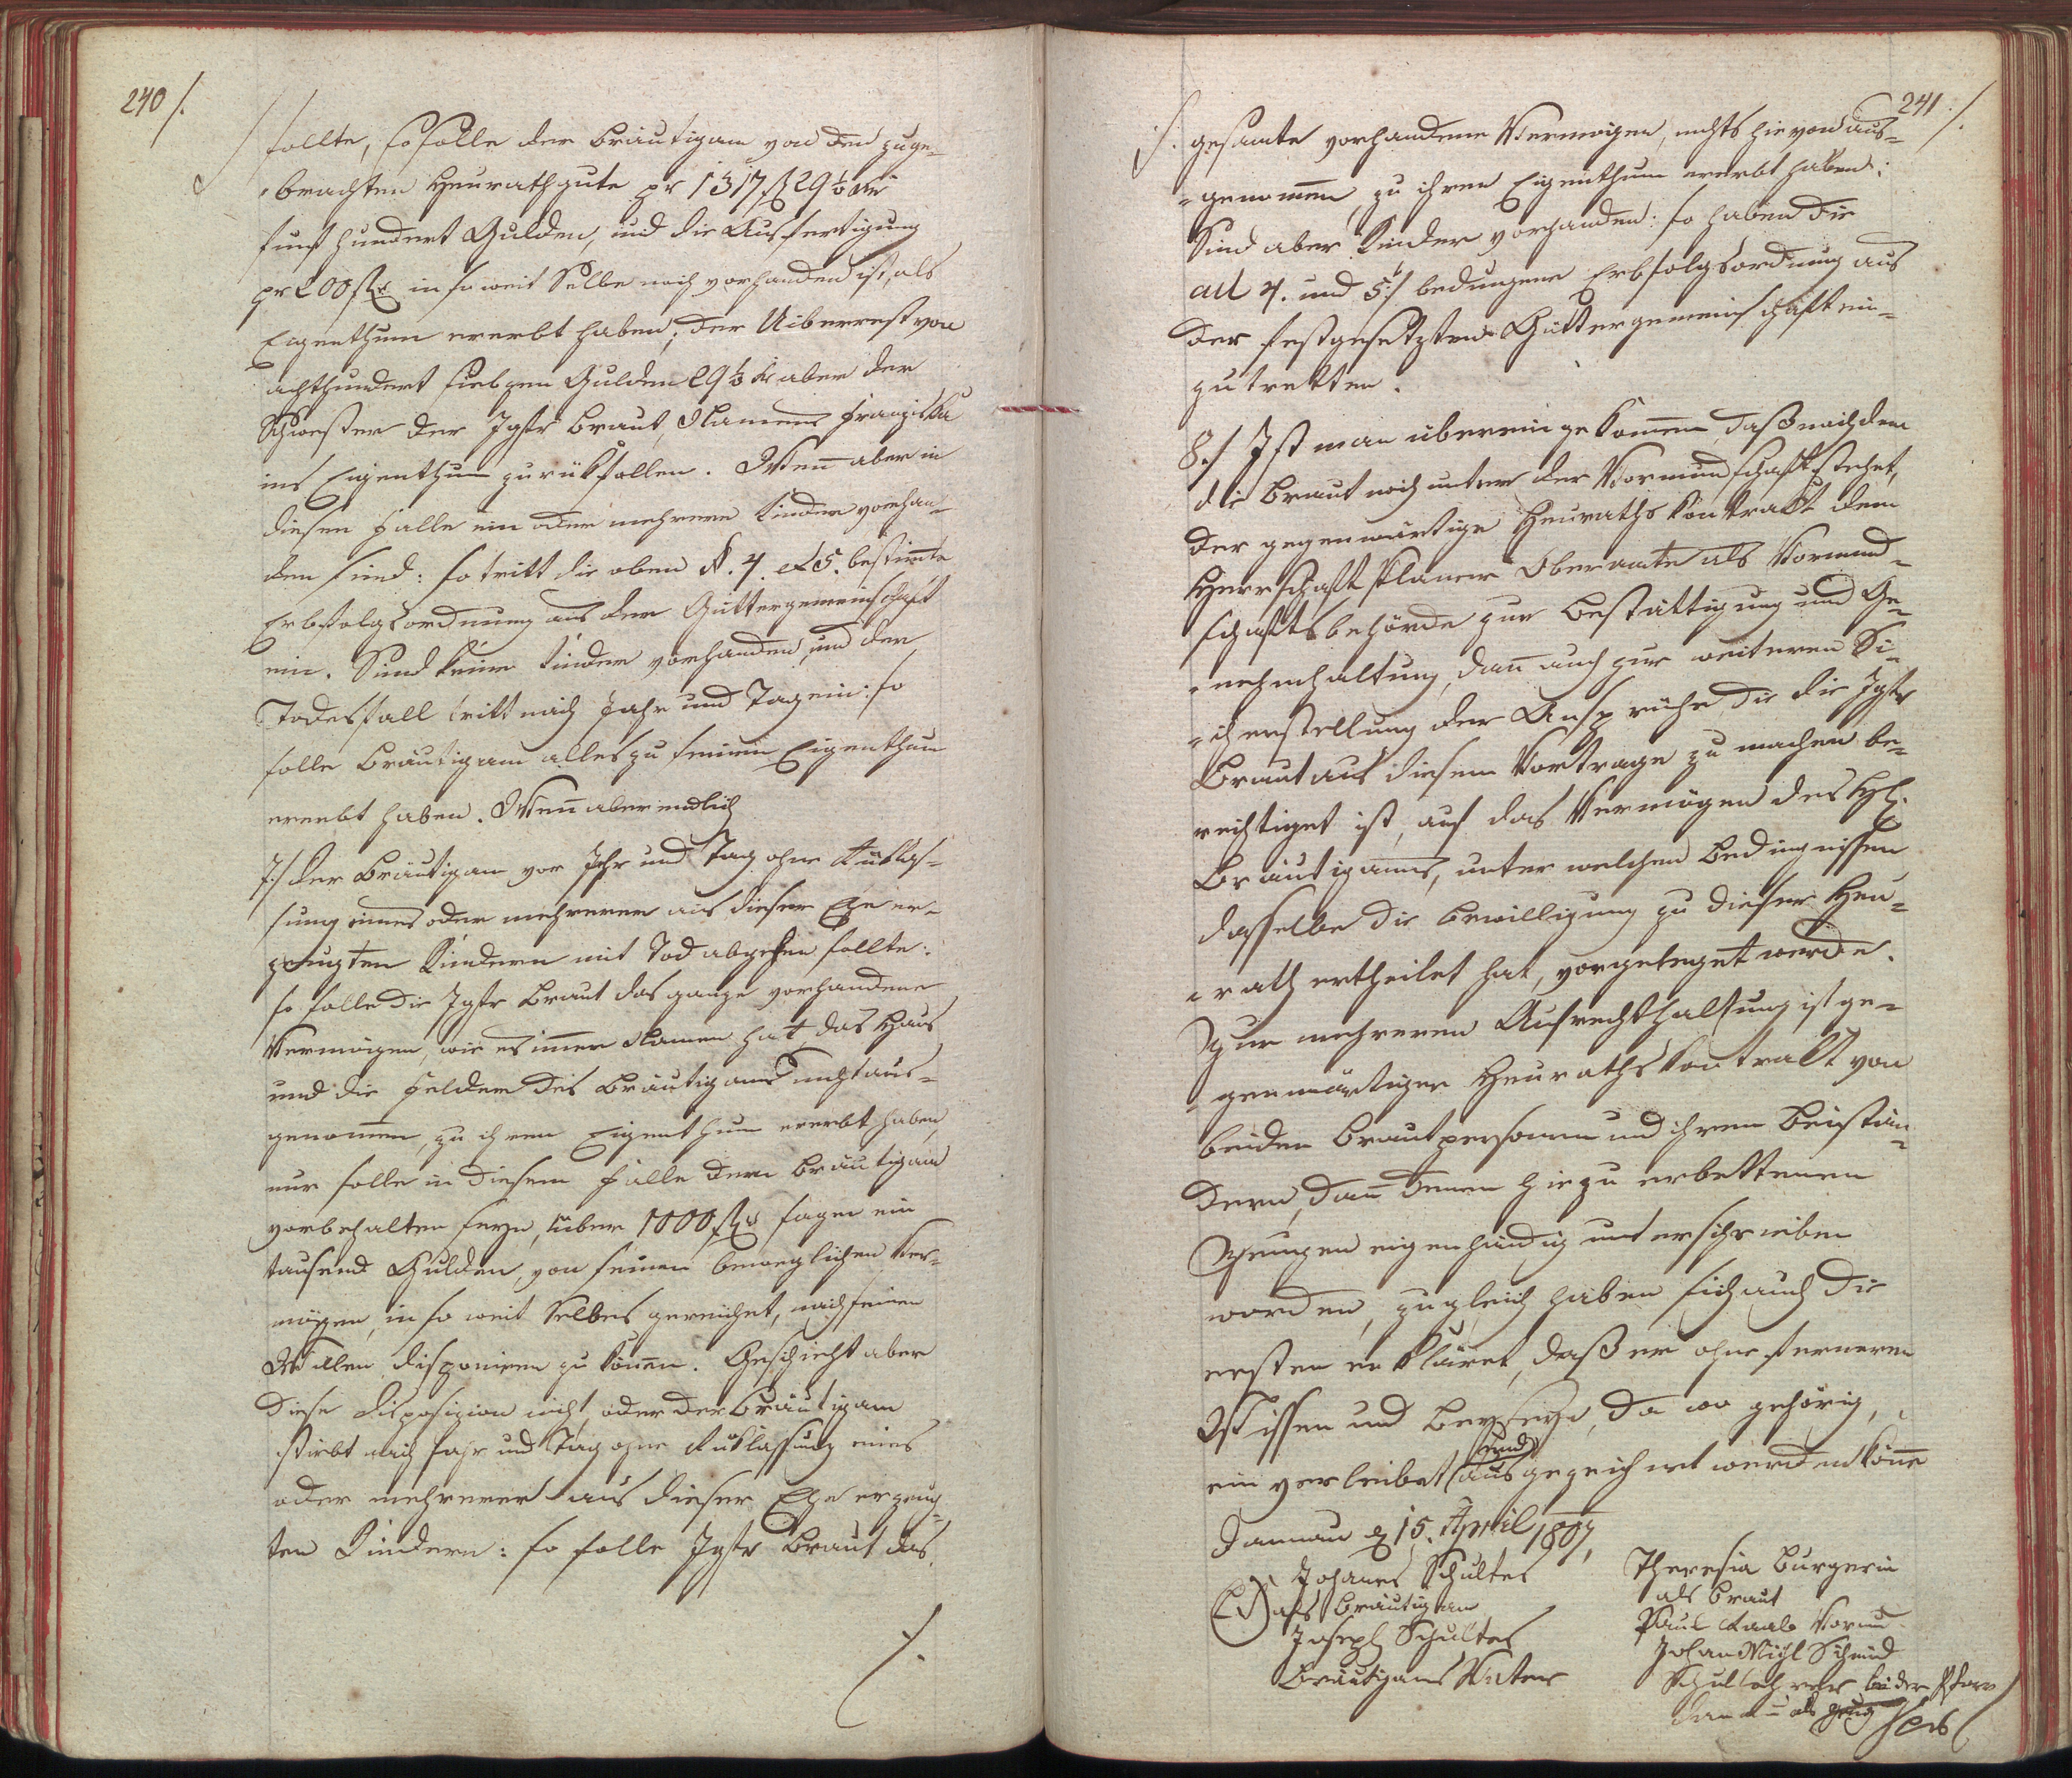 240 /.
sollte, so solle der Bräutigam von den zuge-
brachten Heurathgute pr 1317 fl 29 1/3 kr
funf hundert Gulden, und die Ausfertigung
pr 200 fl in so weit Selbe noch vorhanden ist, als
Eigenthum ererbt haben; der Uiberrest von
achthundert siebzen Gulden 29 1/3 kr aber der
Schwester der Jgfr Braut, Namens Franziska
ins Eigenthum zurükfallen. Wen̄ aber in
diesen Falle ein oder mehrere Kinder vorhan-
den sind: so tritt die oben §. 4. et 5. bestim̄te
Erbfolgsordnung aus der Güttergemeinschaft
ein. Sind keine Kinder vorhanden und der
Todesfall tritt nach Jahr und Tag ein: so
solle Bräutigam alles zu seinem Eigenthum
ererbt haben. Wen̄ aber endlich
7./ der Bräutigam vor Jahr und Tag ohne Rüklas-
sung eines oder mehreren aus dieser Ehe er-
zeugten Kindern mit Tod abgehen sollte:
so solle die Jgfr Braut das ganze vorhandene
Vermögen, wie es im̄er Namen hat, das Haus
und die Felder des Bräutigams nicht aus-
genom̄en, zu ihren Eigenthum ererbt haben,
nur solle in diesem Falle dem Bräutigam
vorbehalten seyn, über 1000 fl sage ein
tausend Gulden, von seinen beweglichen Ver-
mögen, in so weit Selbes gereichet, nach seinen
Willen disponiren zu kön̄en. Geschieht aber
diese Disposizion nicht, oder der Bräutigam
stirbt nach Jahr und Tag ohne Rüklassung eines
oder mehrerer aus dieser Ehe erzeug-
ten Kindern: so solle Jgfr Braut das
/.
241 /.
/. gesamte vorhandene Vermögen, nichts hievon aus-
genom̄en, zu ihren Eigenthum ererbt haben;
Sind aber Kinder vorhanden: so haben die
ad 4. und 5./ bedungene Erbfolgsordnung aus
der festgesetzten Güttergemeinschaft ein-
zutretten.
8./ Ist man übereingekom̄en, daß nachdem
die Braut noch unter der Vormundschaft stehet,
der gegenwärtige Heurathskontrakt dem
Herrschaft Oberamte als Vormund-
schaftsbehörde zur Bestättigung und Ge-
nehmhaltung, dan̄ auch zur weiteren Si-
cherstellung der Ansprüche die die Jgfr
Braut aus diesem Vortrage zu machen be-
rechtiget ist, auf das Vermögen des H:
Bräutigams, unter welchen Bedingnissen
dasselbe die Bewilligung zu dieser Heu-
rath ertheilet hat, vorgeleget werde.
Zur mehreren Aufrechthaltung ist ge-
genwärtiger Heurathskontrakt von
beiden Brautpersonen und ihren Beistän-
dern, dan̄ denen hiezu erbettenen
Zeugen eigenhändig unterschrieben
worden, zugleich haben sich auch die
ersten erkläret, daß er ohne ferneren
Wissen und Beyseyn, da wo gehörig,
ein verleibet und ausgezeichnet werden kön̄e
Dannau d 15. April 1807.
Johanes Schultes
(LS) als Bräutigam
Joseph Schultes
Bräutigams Vater
Theresia Burgerin
als Braut
Paul Raab Vormu
Johan Michl Schmid
Schullehrer bei der Pfarr
als Zeug